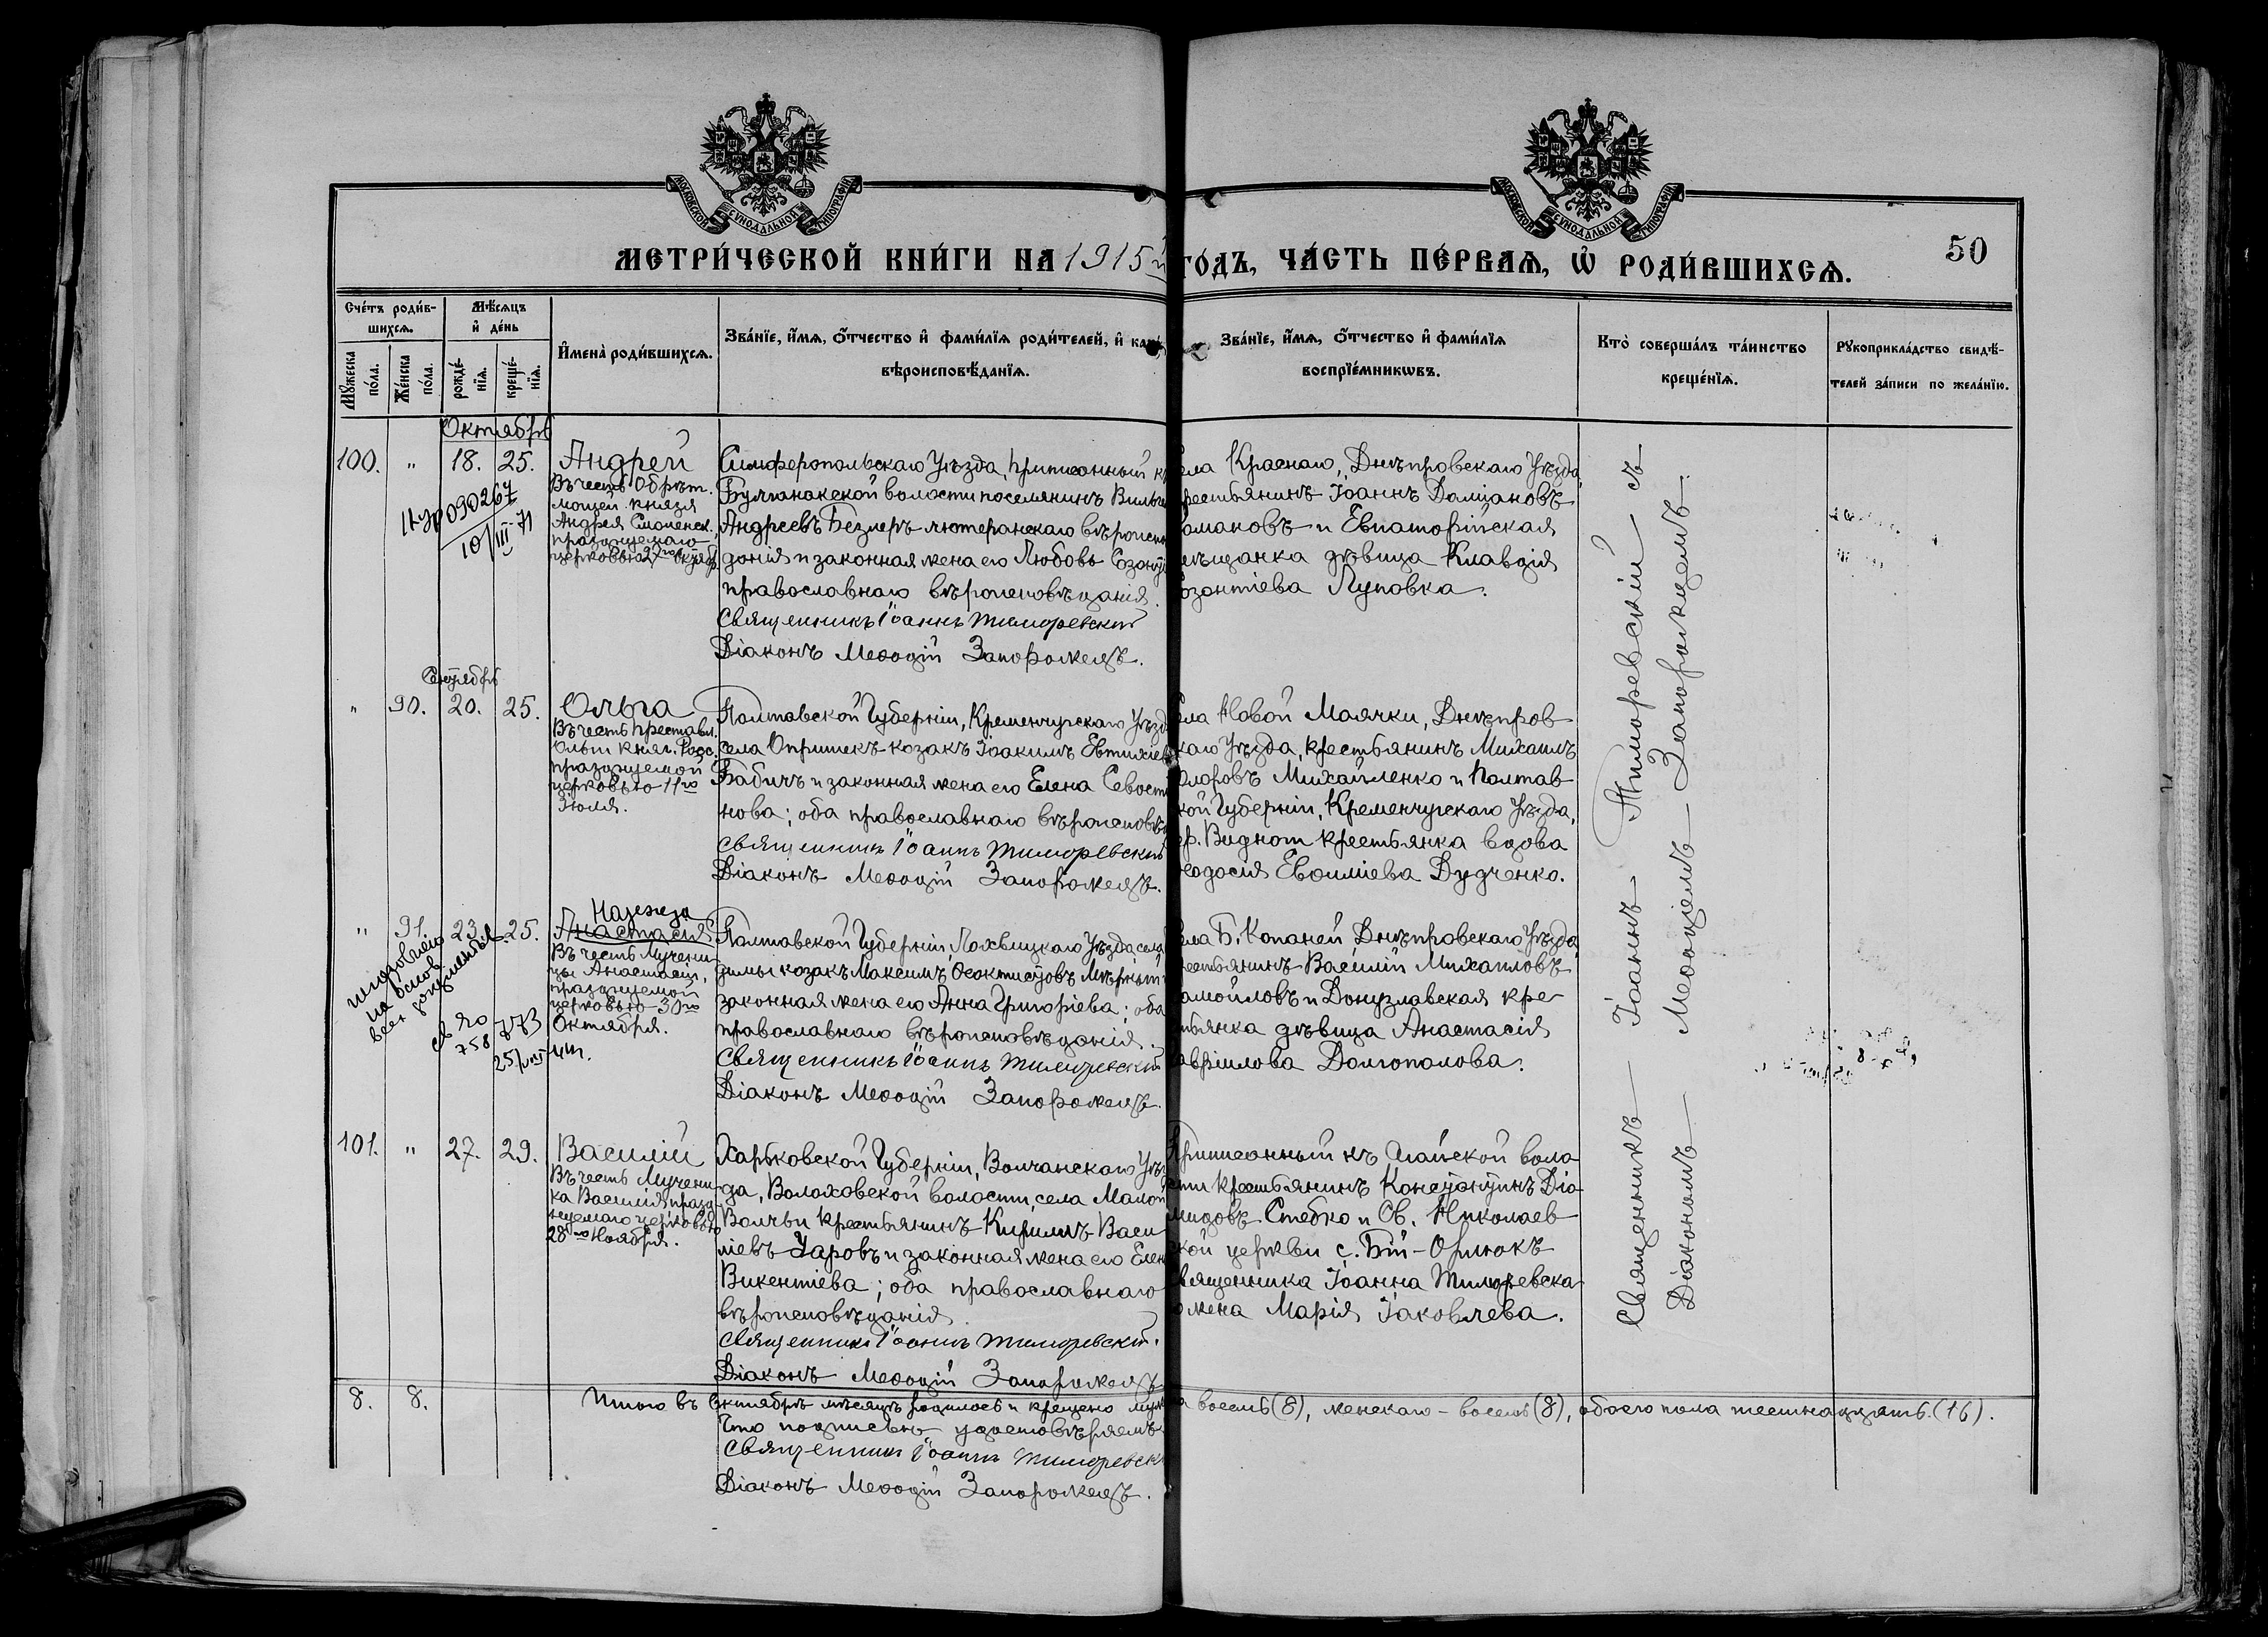 МОСКОВСКОЙ СѴНОДАЛЬНОЙ ТИПОГРАФІИ
МОСКОВСКОЙ СѴНОДАЛЬНОЙ ТИПОГРАФІИ
МЕТРИ́ЧЕСКОЙ КНИ́ГИ НА 1915й ГО́ДЪ, ЧА́СТЬ ПЕ́РВАЯ, Ѡ РОДИ́ВШИХСЯ.
50
Сче́тъ роди́в-
шихсѧ.
Мꙋжеска по́ла.
Же́нска по́ла.
Мѣ́сѧцъ
и де́нь
рожде́-
нїѧ.
креще́-
нїѧ.
Имена̀ роди́вшихсѧ.
Зва́нїе, и́мѧ, ѻ҆́тчество и фами́лїѧ роди́телей, и како́
вѣроисповѣ́данїѧ.
Зва́нїе, и́мѧ, ѻ҆́тчество и фами́лїѧ
воспрїе́мникѡвъ.
Кто̀ соверша́лъ та́инство
креще́нїѧ.
Рꙋкоприкла́дство свидѣ́-
телей за́писи по жела́нїю.
Октябрь
100. " 18. 25. Андрей
Въ честь Обрѣт.
мощей князя
Андрея Смоленск.,
празднуемаго
церковью 27го Октяб.
090267
10/III 71
Симферопольскаго Уѣзда, приписанный к
Булганакской волости поселянинъ Виль
Андреевъ Безлеръ лютеранскаго вѣроиспо
данія и законная жена его Любовь Созон
православнаго вѣроисповѣданія.
Священникъ Іоаннъ Тиморевскій
Діаконъ Меѳодій Запорожецъ.
ела Краснаго, Днѣпровскаго Уѣзда
рестьянинъ Іоаннъ Даміановъ
омановъ и Евпаторійская
ѣщанка дѣвица Клавдія
озонтіева Луповка.
Сентябрь
" 90. 20. 25. Ольга
Въ честь преставл.
Ольги княг. Росс.
празднуемой
церковью 11го
Іюля.
Полтавской Губерніи, Кременчугскаго Уѣзд
села Опришекъ козакъ Іоакимъ Евтихіев
Бабичъ и законная жена его Елена Севост
нова; оба православнаго вѣроисповѣ
Священникъ Іоаннъ Тиморевскій
Діаконъ Меѳодій Запорожецъ.
ела Новой Маячки, Днѣпров
каго Уѣзда, крестьянинъ Михаилъ
Михайленко и Полтав-
кой Губерніи, Кременчугскаго Уѣзда,
ер. крестьянка вдова
еодосія Евѳиміева Дудченко.
" 91. 23. 25. Надежда
Анастасія
Въ честь Мучени-
цы Анастасіи,
празднуемой
церковью 30го
Октября.
на основ
всех документов
773
758
25/VIII
Полтавской Губерніи, Лохвицкаго Уѣзда, села
козакъ Максимъ Мѣрный
законная жена его Анна Григоріева; оба
православнаго вѣроисповѣданія.
Священникъ Іоаннъ Тиморевскій
Діаконъ Меѳодій Запорожецъ.
ела Б. Копаней Днѣпровскаго Уѣзда
рестьянинъ Василій Михаиловъ
амойловъ и Донузлавская кре-
тьянка дѣвица Анастасія
авріилова Долгополова.
101. " 27. 29. Василій
Въ честь Мучени-
ка Василія празд-
нуемаго церковью
28го Ноября.
Харьковской Губерніи, Волчанскаго Уѣз
да, Волоховской волости, села Малой
Волчьи крестьянинъ Кириллъ Васи
ліевъ Уаровъ и законная жена его Елен
Викентіева; оба православнаго
вѣроисповѣданія.
Священникъ Іоаннъ Тиморевскій.
Діаконъ Меѳодій Запорожецъ
Приписанный къ Агайской воло
сти крестьянинъ Діо
мидовъ Стебко и Св. Николаев
ской церкви с. Бій-Орлюкъ
вященника Іоанна Тиморевска
о жена Марія Іаковлева.
Священникъ Іоаннъ Тиморевскій съ
Діакономъ Меѳодіемъ Запорожцемъ.
8. 8. Итого въ Октябрѣ мѣсяцѣ родилось и крещено муж а восемь (8), женскаго - восемь (8), обоего пола шестнадцать. (16).
Что подписью удостовѣряемъ
Священникъ Іоаннъ Тиморевск
Діаконъ Меѳодій Запорожецъ.